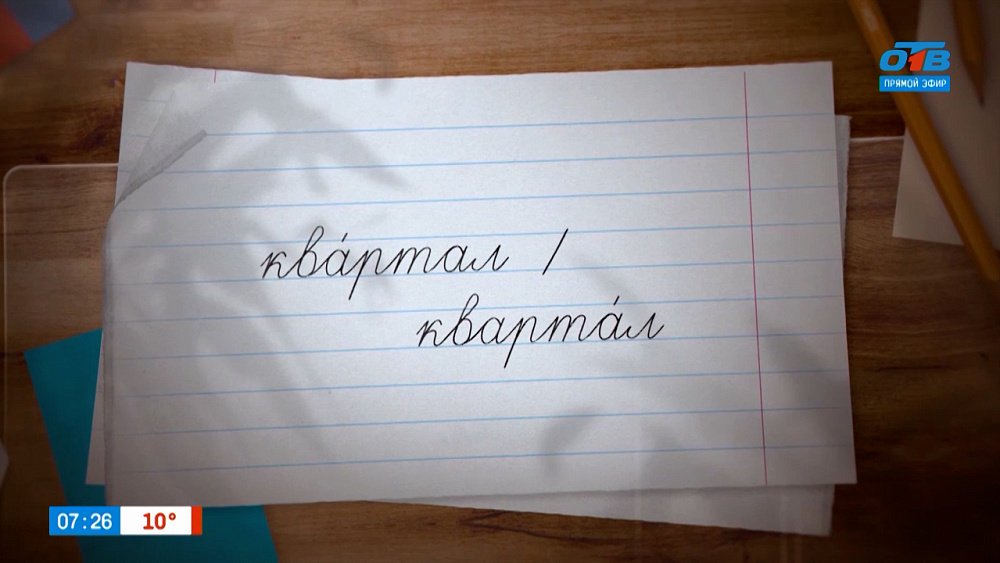 ОТВ
ПРЯМОЙ ЭФИР
ква́ртал /
кварта́л
07:26 10°